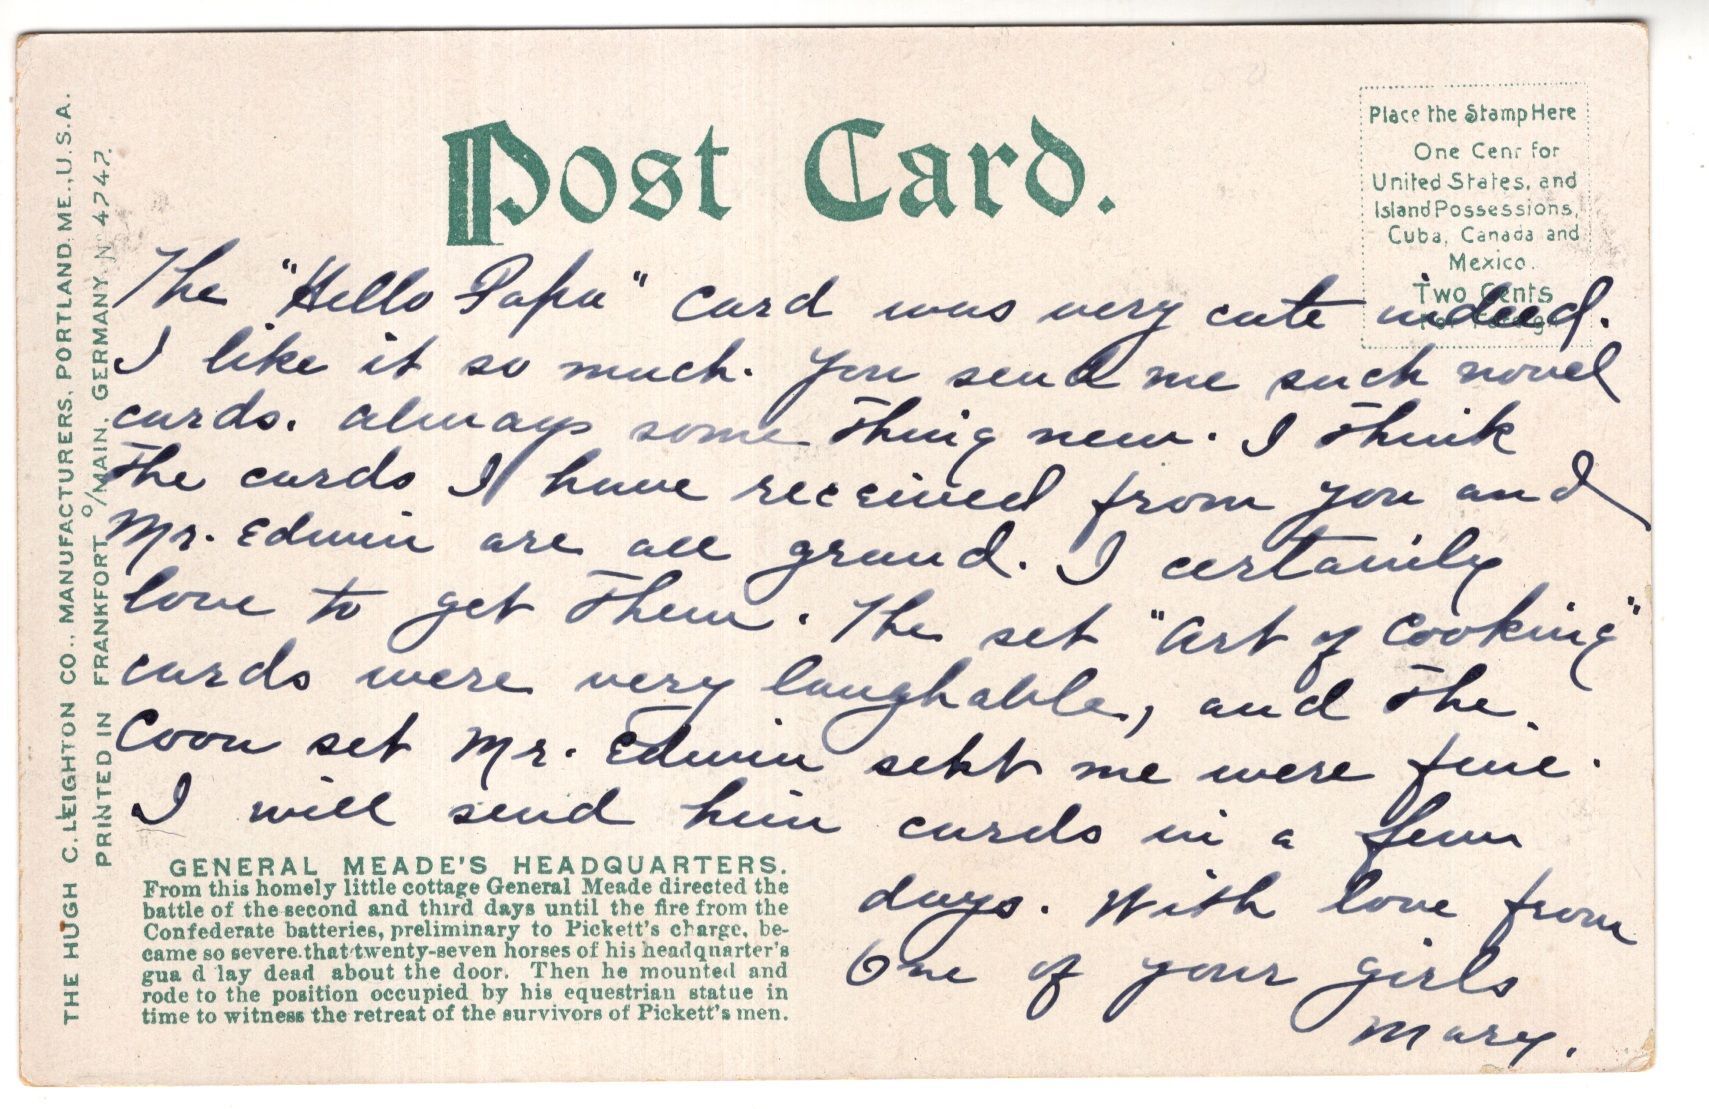 Post Card.
Place the Stamp Here
One Cent for
United States, and
Island Possessions,
Cuba, Canada and
Mexico.
Two Cents
For Foreign
THE HUGH C. LEIGHTON CO., MANUFACTURERS, PORTLAND, ME., U.S.A.
PRINTED IN FRANKFORT O/MAIN, GERMANY. Nº 4747.
The "Hello Papa" card was very cute indeed.
I like it so much. You send me such novel
cards. Always some thing new. I think
the cards I have received from you and
Mr. Edwin are all grand. I certainly
love to get them. The set "Art of Cooking"
cards were very laughable, and the
Coon set Mr. Edwin sent me were fine.
I will send him cards in a few
days. With love from
One of your girls
Mary.
GENERAL MEADE'S HEADQUARTERS.
From this homely little cottage General Meade directed the
battle of the second and third days until the fire from the
Confederate batteries, preliminary to Pickett's charge, be-
came so severe that twenty-seven horses of his headquarter's
gua d lay dead about the door. Then he mounted and
rode to the position occupied by his equestrian statue in
time to witness the retreat of the survivors of Pickett's men.